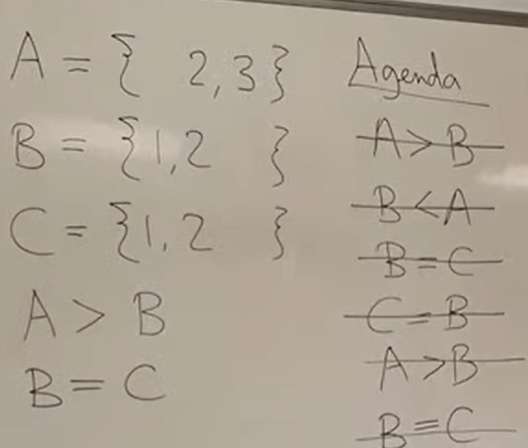 A = { 2,3}
B = {1,2 }
C = {1,2 }
A > B
B = C
Agenda
A > B
B < A
B = C
C = B
A > B
B = C